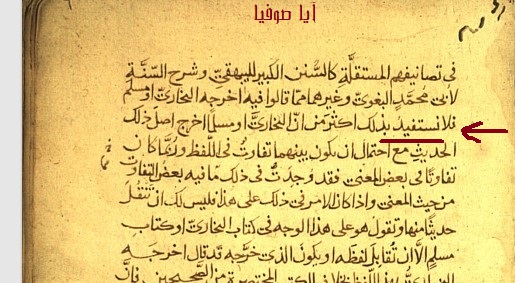 آيا صوفيا
في تصانيفهم المستقلة كالسُّنن الكبير للبيهقي وشرح السُّنَّة
لأبي محمدٍ البغوي وغيرهما مما قالوا فيه اخرجه البخاري او مسلم
فلا نستفيد بذلك اكثر من انّ البخاريَّ او مسلمًا اخرج اصل ذلك
الحديث مع احتمال ان يكون بينهما تفاوتٌ في اللفظ وربَّما كان
تفاوتًا في بعض المعنى فقد وجدتُ في ذلك ما فيه بعض التفاوت
من حيث المعنى واذا كان الامر في ذلك على هذا فليس لك ان تنقل
حديثًا منها وتقول هو على هذا الوجه في كتاب البخاري او كتاب
مسلم الا ان تُقابل لفظه او يكون الذي خرَّجه قد قال اخرجه